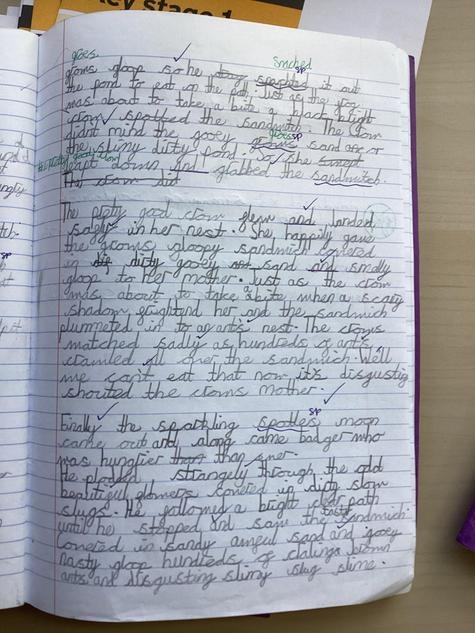 key stage 1
groes
Smched
sp
groms gloop so he spached it out
the pond to eat up the Just as the frog
was about to take a bite a black bright
crow spotted the sandwich. The crow
didnt mind the gooey sand or
the slimy dirty pond. So she
leapt down and grabbed the sandwitch.
The crow did
The prety god crow flew and landed
sadly in her nest. She happily gave
the groms gloopy sandwich covered
in dirty gooey sand and smelly
gloop to her mother. Just as the crow
was about to take abite when a scary
shadow frightend her and the sandwich
plummeted in to an ants' nest. The crows
watched sadly as hundreds of ants
crawled all over the sandwich. Well
we can't eat that now it's disgusting
shouted the crows mother.
sp
Finally the sparkling spotles moon
came out and along came badger who
was hungrier than than ever.
He ploded strangely through the odd
beatiful flowers covered in dirty slow
slugs. He followed a bright clear path
until he stopped and saw the sandwich
tasty
covered in sandy sand and gooey
nasty gloop hundreds of brown
ants and disgusting slimy slug slime.